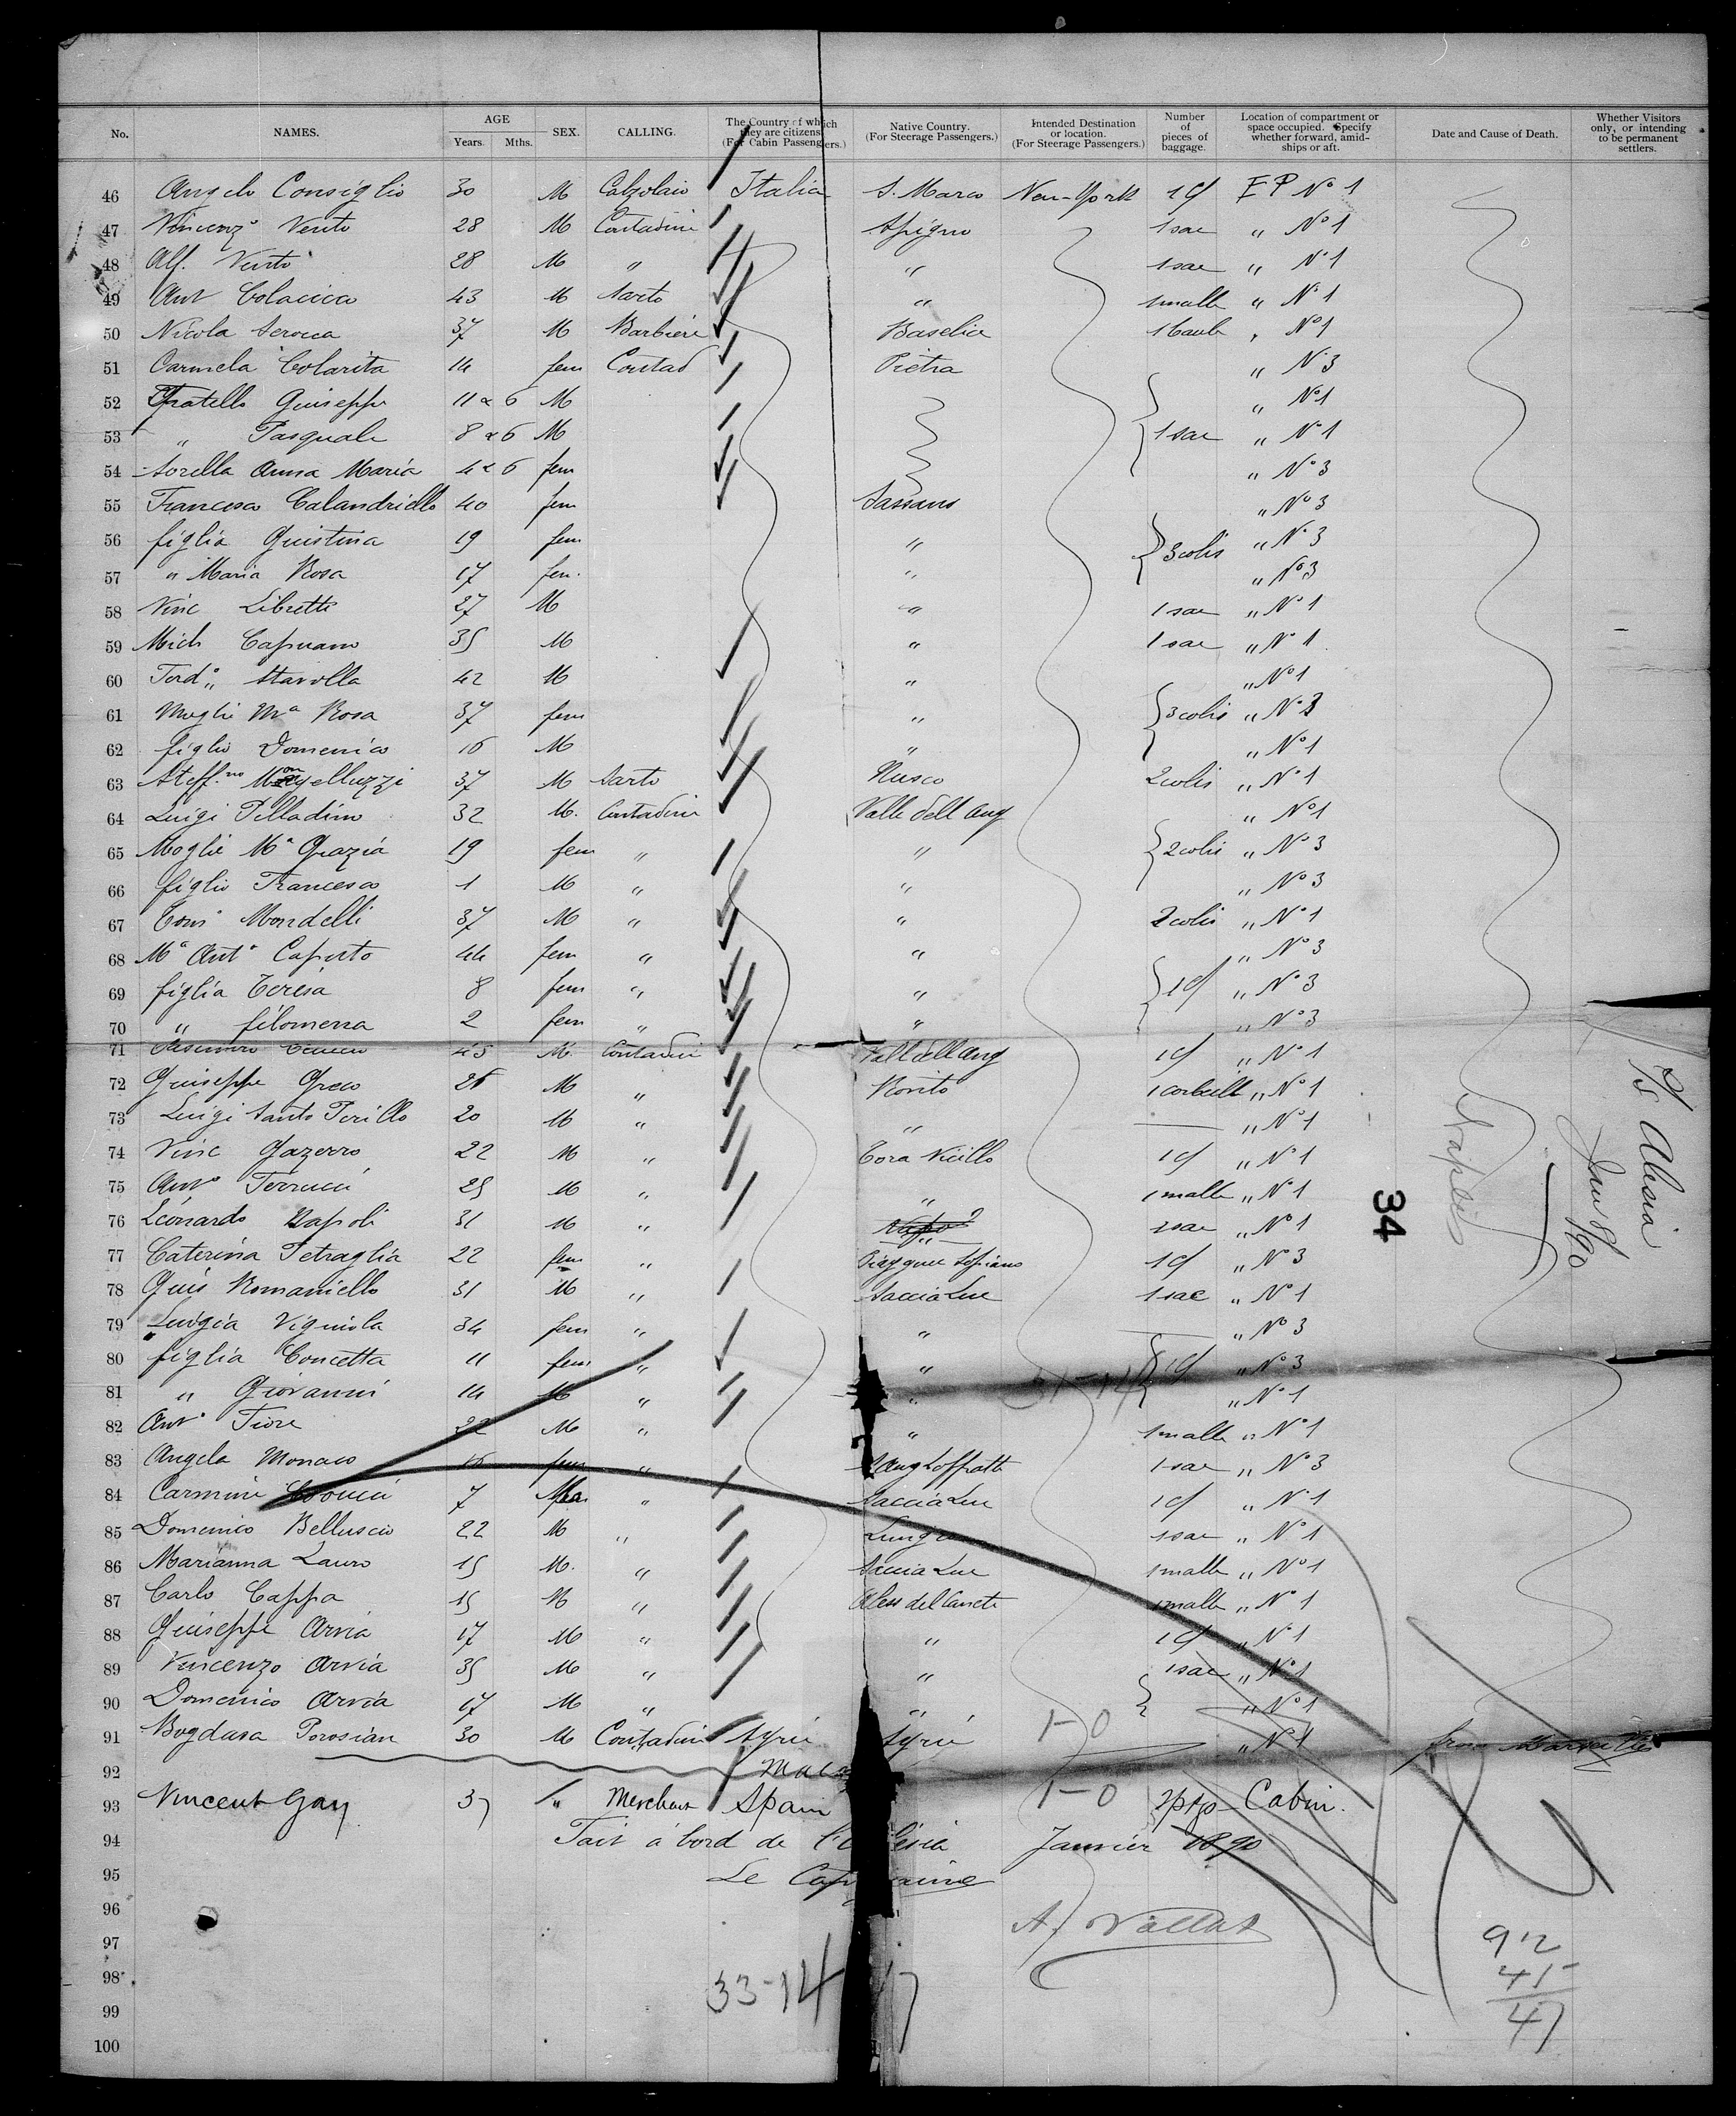 No. NAMES. AGE Years. Mths. SEX. CALLING. The Country of which they are citizens. (For Cabin Passengers.) Native Country. (For Steerage Passengers.) Intended Destination or location. (For Steerage Passengers.) Number of pieces of baggage. Location of compartment or space occupied. Specify whether forward, amidships or aft. Date and Cause of Death. Whether Visitors only, or intending to be permanent settlers.
46 Angelo Consiglio 30 M Calzolaio Italia S. Marco New-York 1 cf E P No 1
47 Vincenzo Vento 28 M Contadini Spigno 1 sac " No 1
48 Alf. Vento 28 M " " 1 sac " No 1
49 Ant Colacicca 43 M Sarto " 1 malle " No 1
50 Nicola Serocca 37 M Barbiere Baselice " No 1
51 Carmela Colarita 14 fem Contad Pietra " No 3
52 Fratello Guiseppe 11 & 6 M " No 1
53 " Pasquale 8 & 6 M 1 sac " No 1
54 Sorella Anna Maria 4 & 6 fem " No 3
55 Francesca Calandriello 40 fem Sassano " No 3
56 figlia Guistina 19 fem " 3 colis " No 3
57 " Maria Rosa 17 fem. " " No 3
58 Vinc Libretti 27 M " 1 sac " No 1
59 Mich Capuano 35 M " 1 sac " No 1
60 Ferdo Stavolla 42 M " " No 1
61 Moglie Ma Rosa 37 fem " 3 colis " No 3
62 figlio Domenico 16 M " " No 1
63 Steff.no Mongelluzzi 37 M Sarto Nusco 2 colis " No 1
64 Luigi Pelladino 32 M. Contadini Valle dell Ang " No 1
65 Moglie Ma Grazia 19 fem " " 2 colis " No 3
66 figlio Francesco 1 M " " " No 3
67 Tomo Mondelli 37 M " " 2 colis " No 1
68 Ma Anta Caputo 44 fem " " " No 3
69 figlia Teresa 8 fem " " 1 cf " No 3
70 " filomena 2 fem " " " No 3
71 45 M. Contadini Vall dell Ang 1 cf " No 1
72 Guiseppe Greco 26 M " Bonito 1 corbeille " No 1
73 Luigi Santo Perillo 20 M " " — " No 1
74 Vinc Gazerro 22 M " Tora Vicillo 1 cf " No 1
75 Anto Ferrucci 25 M " " 1 malle " No 1
76 Leonardo Napoli 31 M " " 1 sac " No 1
77 Caterina Petraglia 22 fem " 1 cf " No 3
78 Guis Romaniello 31 M " 1 sac " No 1
79 Luigia Vignola 34 fem " " — " No 3
80 figlia Concetta 11 fem " " 1 cf " No 3
81 " Giovanni 14 M " " " No 1
82 Anto Fiore 22 M " " 1 malle " No 1
83 Angela Monaco 16 fem " 1 sac " No 3
84 Carmine 7 " 1 cf " No 1
85 Domenico Belluscio 22 M " 1 sac " No 1
86 Marianna Lauro 15 M. " 1 malle " No 1
87 Carlo Cappa 15 M " 1 malle " No 1
88 Guiseppe Arvia 17 M " " 1 cf " No 1
89 Vincenzo Arvia 35 M " " 1 sac " No 1
90 Domenico Arvia 17 M " " " No 1
91 Bogdasa Porosian 30 M Contadini Syrie Syrie 1-0 " No 1 from Marseilles
92
93 Vincent Gay 37 " Merchant Spain 1-0 2 pkgs Cabin.
94 Fait à bord de l' Janvier 1890
95 Le Capitaine
96 A. Vallat
97
98 33-14
99
100
Naples
34
S/S Alesia
Jan 8/90
31-14
92
45
47